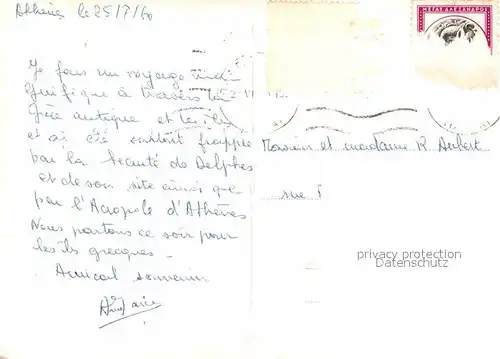 Athènes le 25/7/60
ΜΕΓΑΣ ΑΛΕΞΑΝΔΡΟΣ
Je fais un voyage
à travers la
Grèce antique et
et ai été surtout frappée
par la beauté de Delphes
et de son site ainsi que
par l'Acropole d'Athènes
Nous partons ce soir pour
les îles grecques -
Amical souvenir
Monsieur et madame R Aubert
rue
privacy protection
Datenschutz